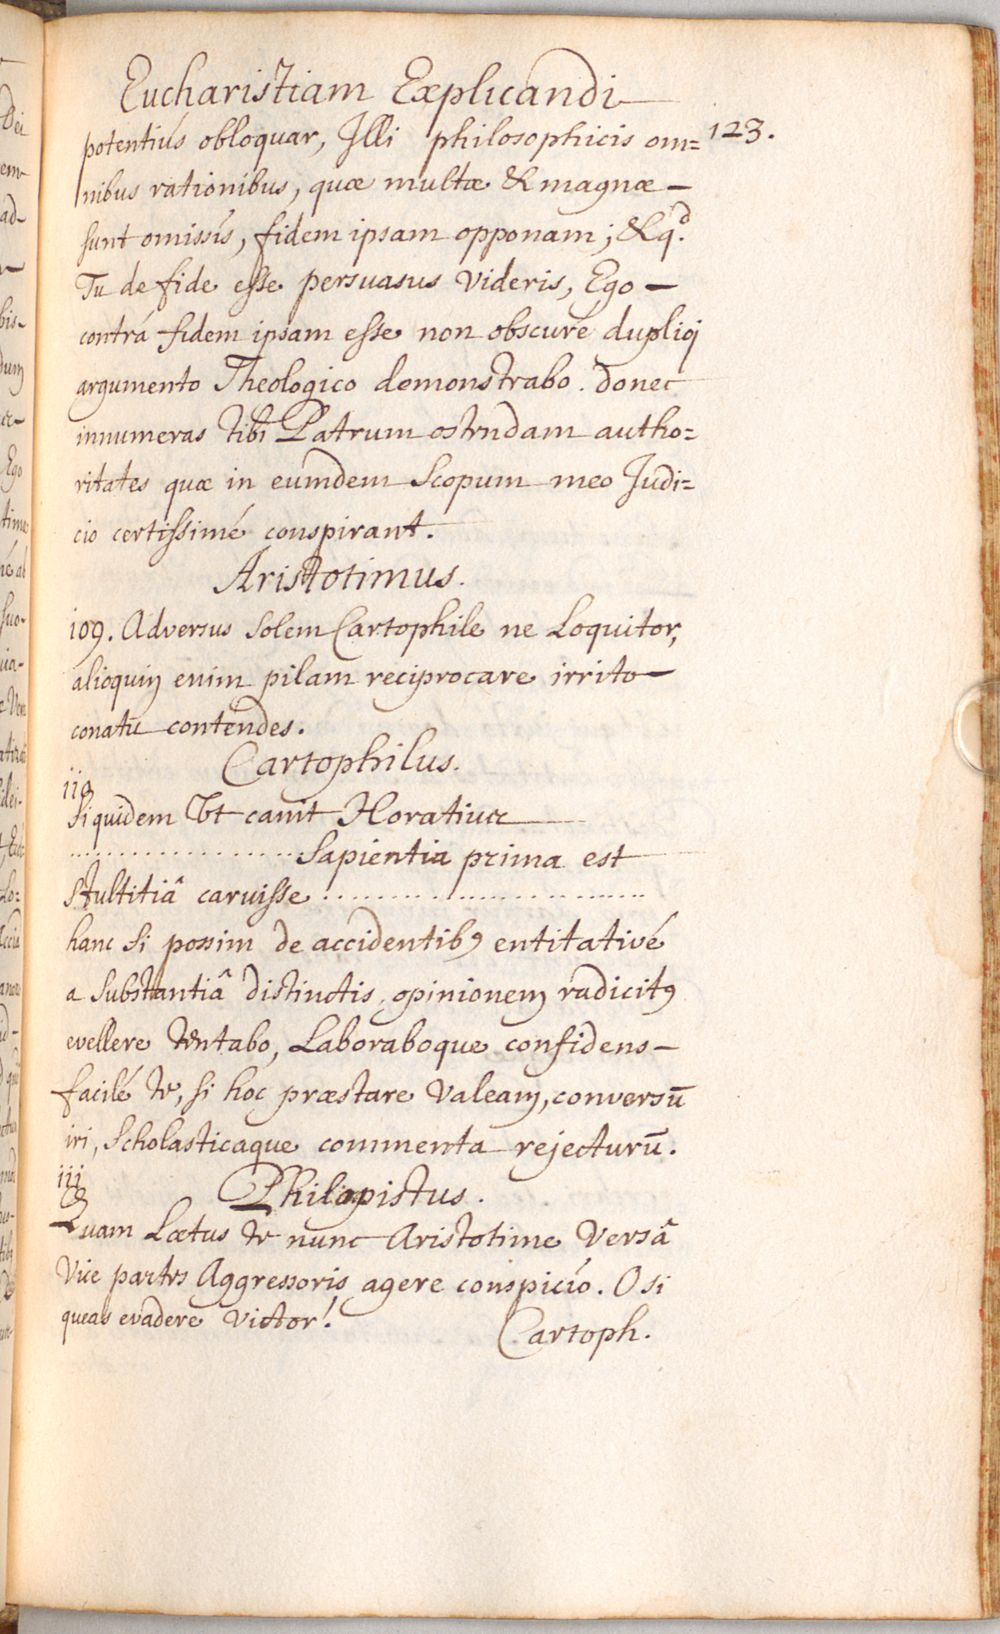 Eucharistiam Explicandi
123.
potentiús obloquar, Illi philosophicis om=
nibus rationibus, quæ multæ & magnæ
sunt omissís, fidem ipsam opponam; & qd.
Tu de fide esse persuasus Videris, Ego
contrá fidem ipsam esse non obscuré duplici
argumento Theologico demonstrabo. donec
innumeras tibi Patrum ostendam autho=
ritates quæ in eumdem Scopum meo Judi=
cio certissimé conspirant.
Aristotimus.
109. Adversus Solem Cartophile ne Loquitor,
alioquin enim pilam reciprocare irrito
conatu contendes.
Cartophilus.
110
Siquidem Vt canit Horatius
.................... Sapientia prima est
Stultitiâ caruisse ....................
hanc Si possim de accidentibq entitativé
a Substantiâ distinctis, opinionem radicitq
evellere tentabo, Laboraboque confidens
facilé te, si hoc præstare Valeam, conversū
iri, Scholasticaque commenta rejecturū.
111
Philopistus.
Quam Lætus te nunc Aristotime Versâ
Vice partes Aggressoris agere conspicio. O si
queas evadere Victor!
Cartoph.